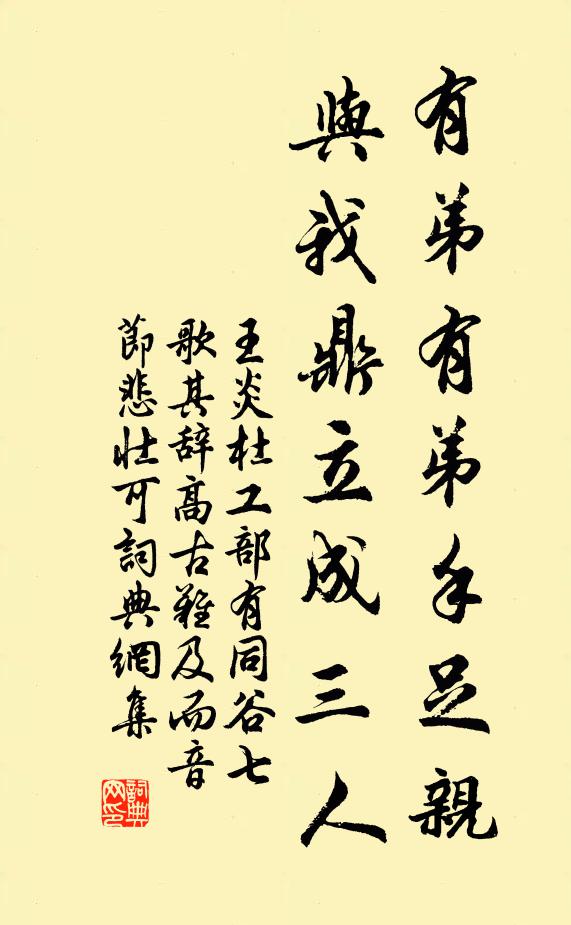 有弟有弟手足親
與我鼎立成三人
王炎杜工部有同谷七
歌其辞高古難及而音
節悲壮可詞典網集
詞典網印